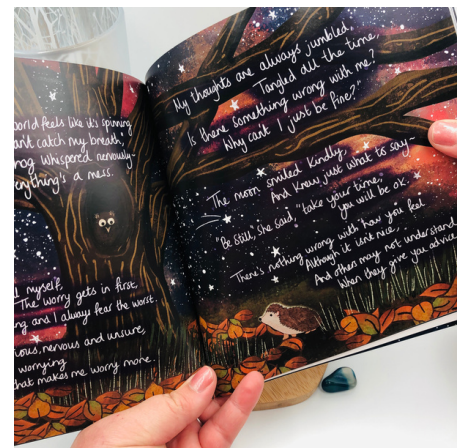 world feels like it's spinning
can't catch my breath,"
hog whispered nervously-
everything's a mess.
myself,
The worry gets in first,
and I always fear the worst.
nervous and unsure,
worrying
that makes me worry more.
My thoughts are always jumbled,
Tangled all the time,
Is there something wrong with me?
Why can't I just be fine?"
The moon smiled kindly,
And knew just what to say~
"Be still, she said, "take your time,
you will be ok.
There's nothing wrong with how you feel
Although it isnt nice,
And others may not understand
When they give you advice